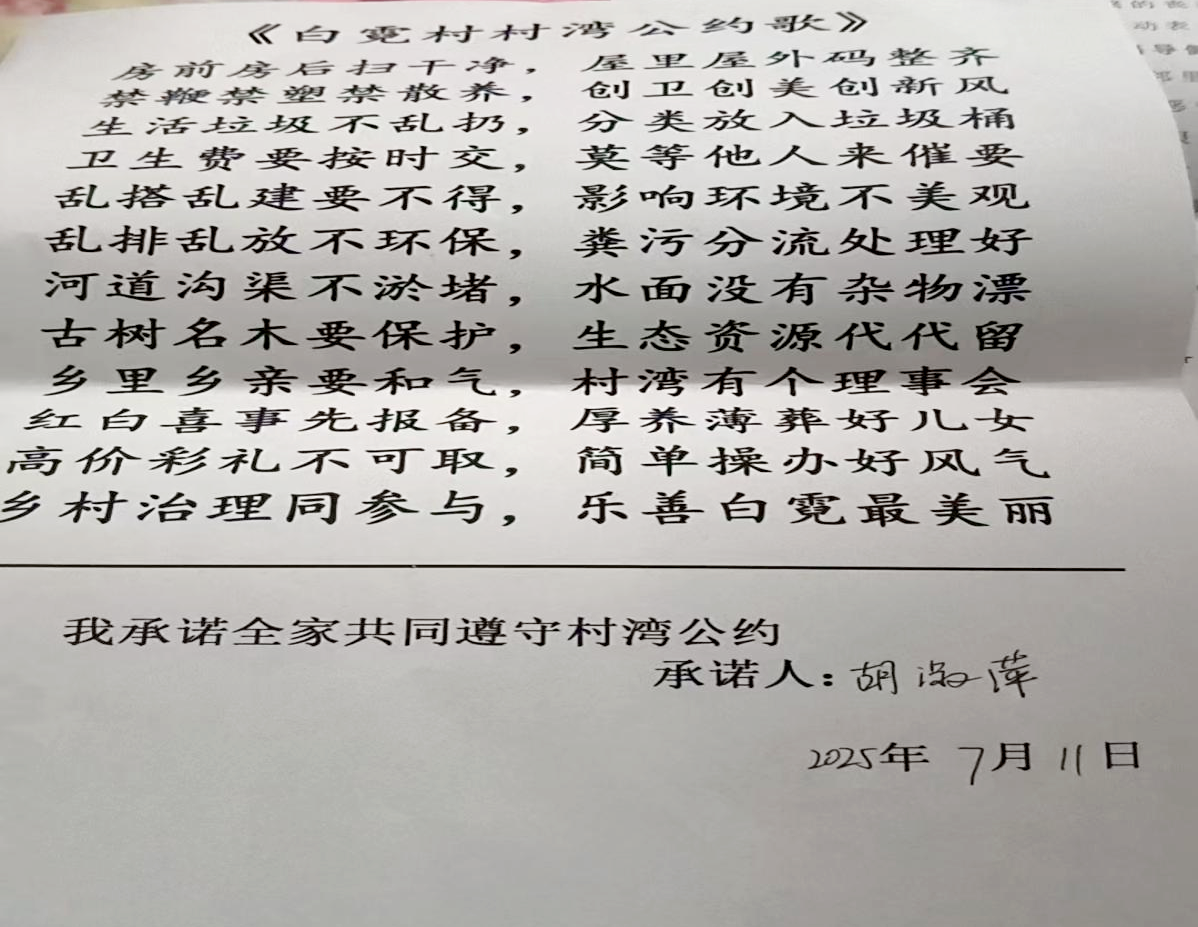 《白霓村村湾公约歌》
房前房后扫干净，屋里屋外码整齐
禁鞭禁塑禁散养，创卫创美创新风
生活垃圾不乱扔，分类放入垃圾桶
卫生费要按时交，莫等他人来催要
乱搭乱建要不得，影响环境不美观
乱排乱放不环保，粪污分流处理好
河道沟渠不淤堵，水面没有杂物漂
古树名木要保护，生态资源代代留
乡里乡亲要和气，村湾有个理事会
红白喜事先报备，厚养薄葬好儿女
高价彩礼不可取，简单操办好风气
乡村治理同参与，乐善白霓最美丽
我承诺全家共同遵守村湾公约
承诺人：胡淑萍
2025年 7月 11日